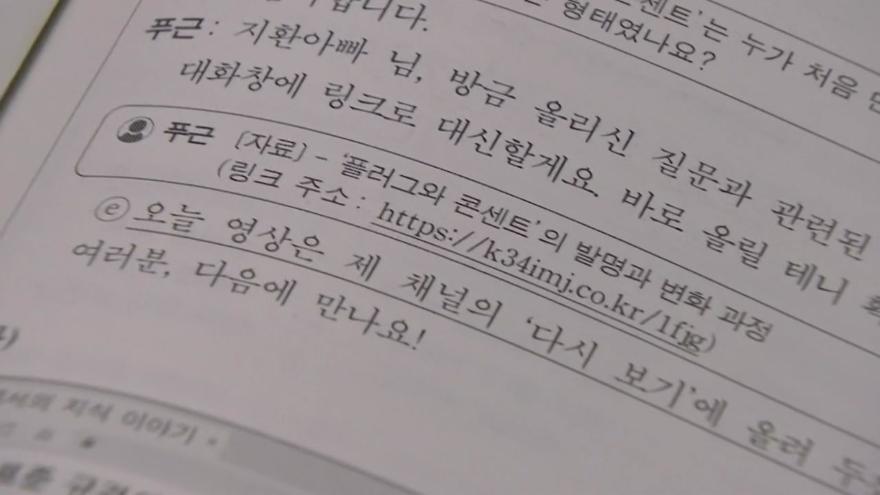 센트'는 누가 처음
형태였나요?
푸근: 지환아빠 님, 방금 올리신 질문과 관련된
대화창에 링크로 대신할게요. 바로 올릴 테니
푸근 [자료] - '플러그와 콘센트'의 발명과 변화 과정
(링크 주소 : https://k34imj.co.kr/1fjg)
ⓔ 오늘 영상은 제 채널의 '다시 보기'에 올려
여러분, 다음에 만나요!
지식 이야기